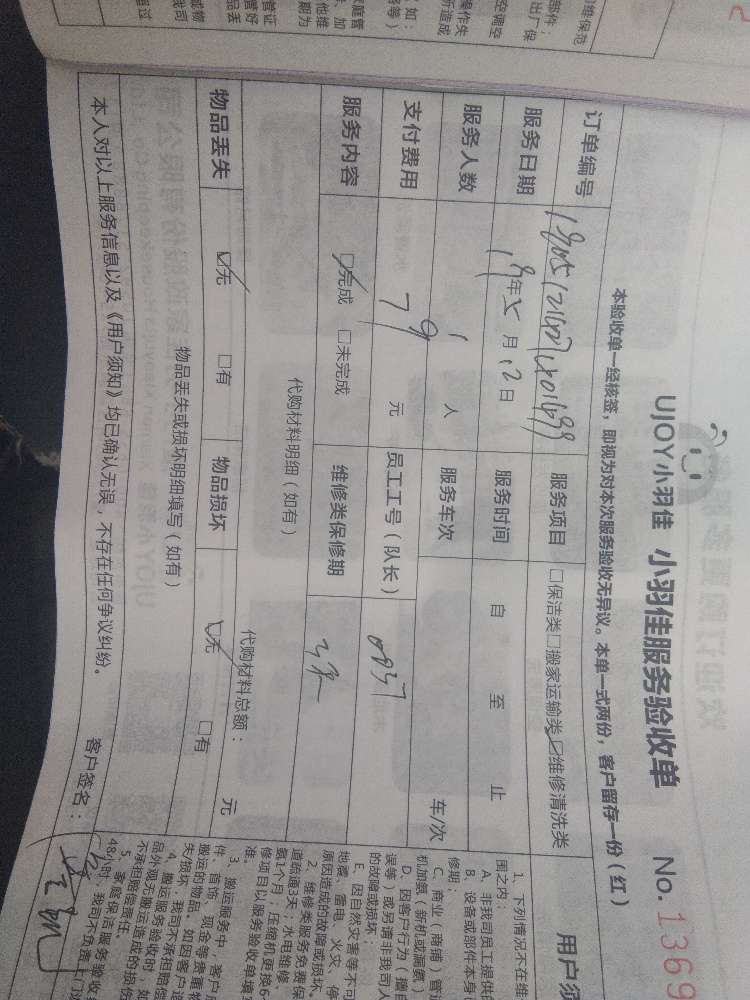 UJOY小羽佳 小羽佳服务验收单 No. 1369
本验收单一经核签，即视为对本次服务验收无异议。本单一式两份，客户留存一份（红）
订单编号 服务项目 □保洁类□搬家运输类☑维修清洗类
服务日期 19年5月12日 服务时间 自 至 止
服务人数 1人 服务车次 车/次
支付费用 79元 员工工号（队长） 0837
服务内容 ☑完成 □未完成 维修类保修期 3天
代购材料明细（如有）
代购材料总额： 元
物品丢失 ☑无 □有 物品损坏 ☑无 □有
物品丢失或损坏明细填写（如有）
本人对以上服务信息以及《用户须知》均已确认无误，不存在任何争议纠纷。 客户签名：
用户须
1、下列情况不在维
围之内：
A、非我司员工提供的
B、设备或部件本身
修期；
C、商业（商铺）管道
机加氨（新机或漏氨）
D、因客户行为（擅自
误等）或另请非我司人
的故障或损坏；
E、因自然灾害等不可
地震、雷电、火灾、停
原因造成的故障或损坏。
2、维修类服务免费保
道疏通3天；水电维修
氨1个月；压缩机更换6
修项目以服务验收单填写
准。
3、搬运服务中，客户应
件、首饰、现金等贵重物
搬运的物品。如因客户
失/损坏，我司不承担赔偿
4、搬运服务验收时，如
品外观无搬运造成的损伤
不承担赔偿责任。
5、家庭保洁服务验收
48小时，我司不负责上门